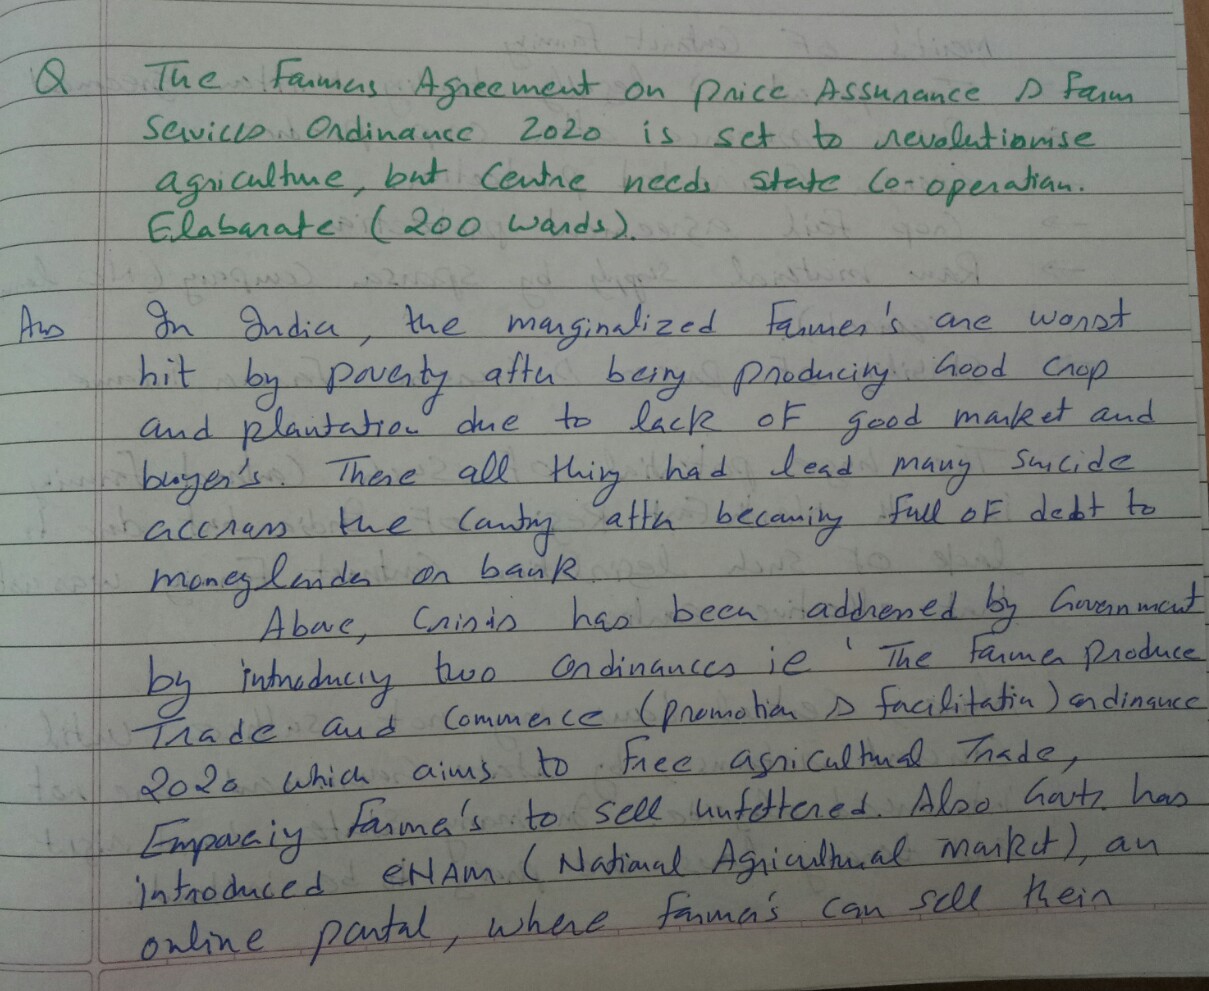 Q The Farmers Agreement on Price Assurance & Farm
Services Ordinance 2020 is set to revolutionise
agriculture, but Centre needs state Co-operation.
Elaborate (200 words).
Ans In India, the marginalized Farmer's are worst
hit by poverty after being producing Good Crop
and plantation due to lack of good market and
buyer's. There all thing had lead many suicide
accross the Cantry after becoming full of debt to
moneylender or bank
Above, Crisis has been addressed by Government
by introducing two ordinances ie ' The Farmer Produce
Trade and Commerce (promotion & facilitation) ordinance
2020 which aims to free agricultural Trade,
Empoweiy Farmer's to sell unfettered. Also Govt. has
introduced eNAM (National Agricultural market), an
online portal, where farmer's can sell their